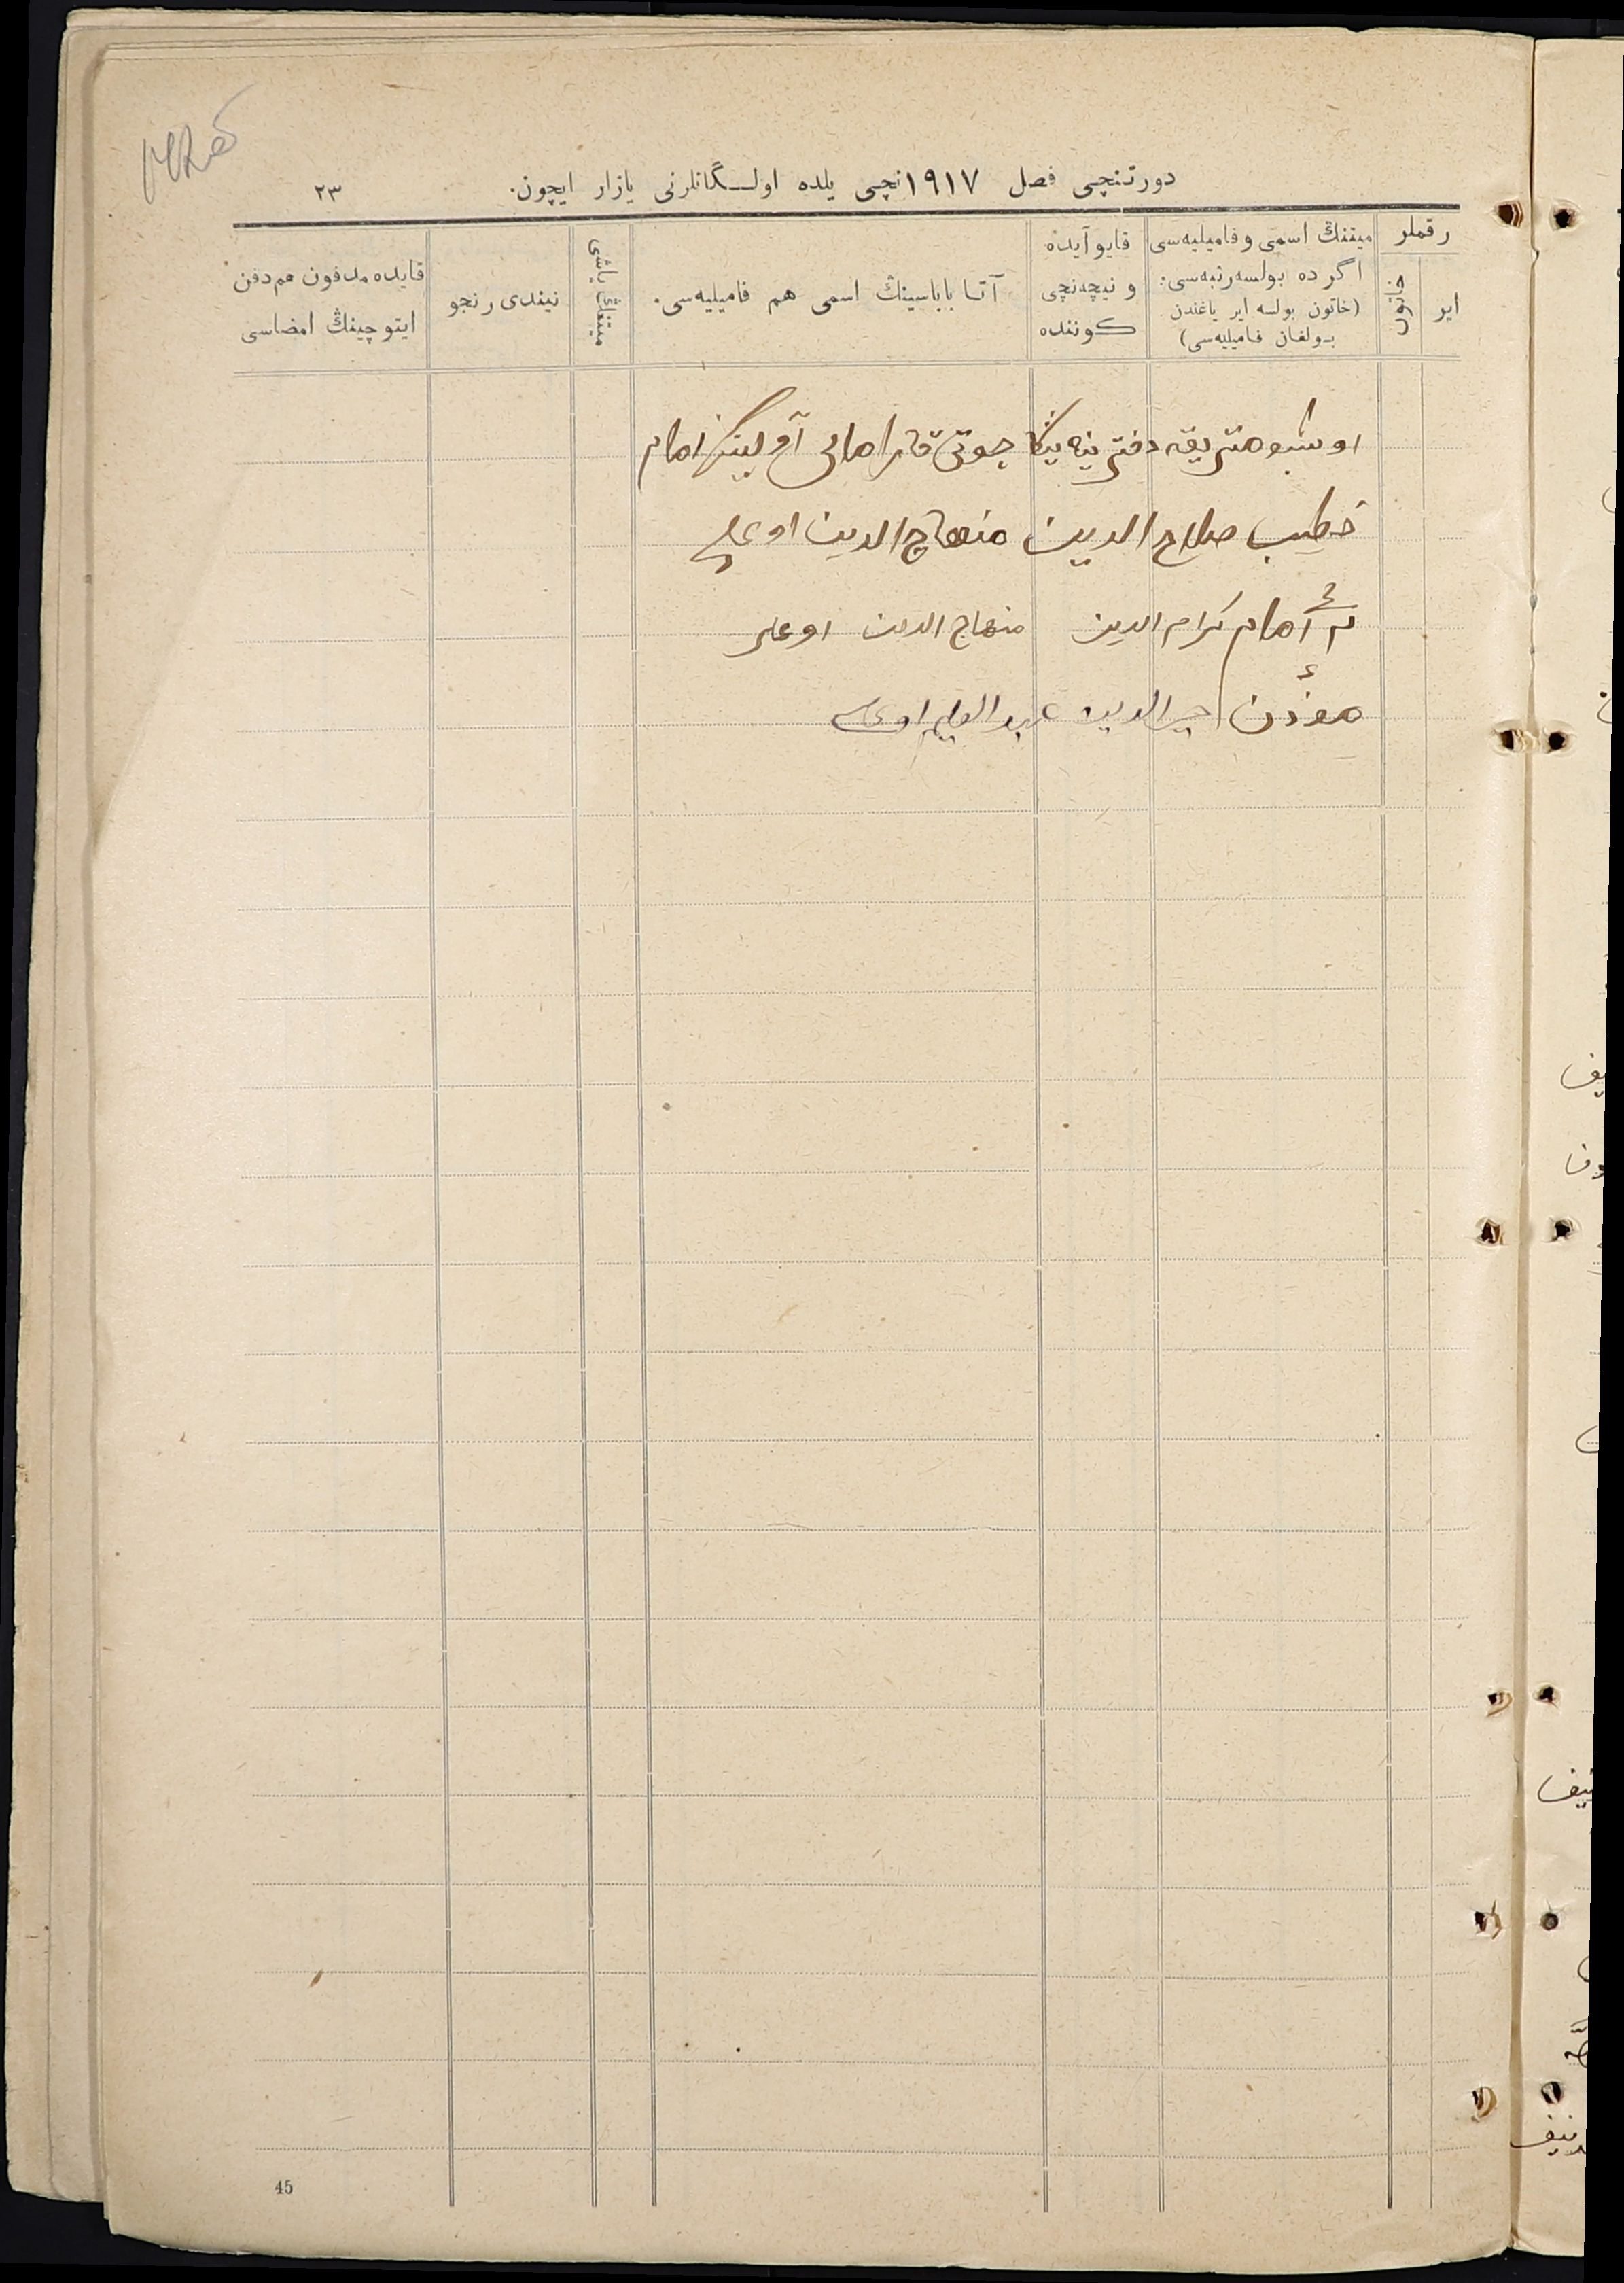 دورتنچی فصل ۱۹۱۷نچی یلده اولـگانلرنی یازار ایچون.
۲۳
رقملر
ایر
خاتون
میتنڭ اسمی و فامیلیه‌سی
اگر ده بولسه رتبه‌سی:
(خاتون بولسه ایر یاغندن
بولغان فامیلیه‌سی)
قایو آیده
و نیچه‌نچی
کوننده
آتا باباسینڭ اسمی هم فامیلیه‌سی.
میتنڭ یاشی
نیندی رنجو
قایده مدفون هم دفن
ایتوچینڭ امضاسی
اوشبو متریقه دفترینه امام
خطیب صلاح الدین منهاج الدین اوغلی
امام کرام الدین منهاج الدین اوغلی
مؤذن اوغلی
45